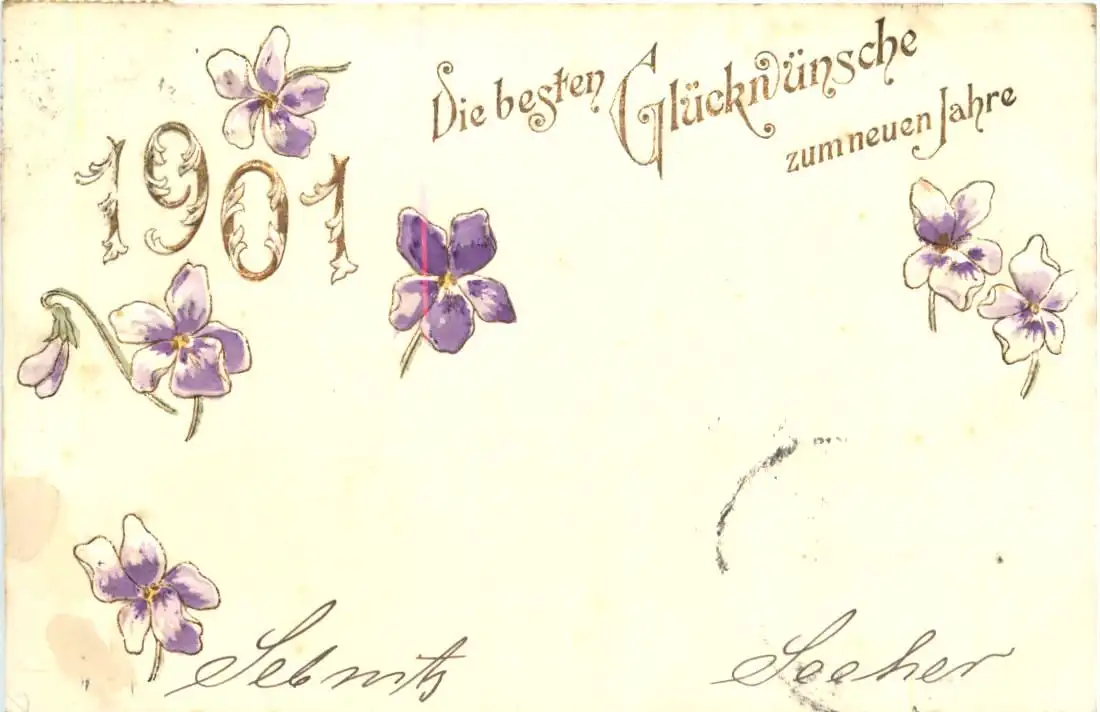 1901
Die besten Glückwünsche
zum neuen Jahre
Sebnitz